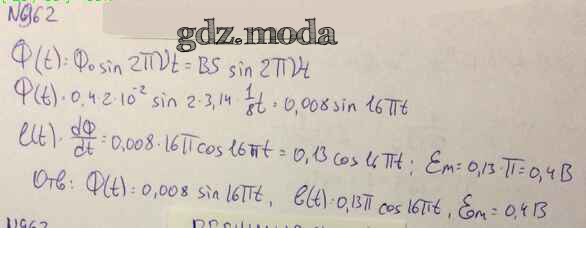 N962
gdz.moda
Φ(t) = Φ₀ sin 2πνt = BS sin 2πνt
Φ(t) = 0,4·2·10⁻² sin 2·3,14·1/8t = 0,008 sin 16πt
e(t) = dΦ/dt = 0,008·16π cos 16πt = 0,13 cos 16πt; Ɛm = 0,13·π = 0,4 В
Отв: Φ(t) = 0,008 sin 16πt, e(t) = 0,13π cos 16πt, Ɛm = 0,4 В